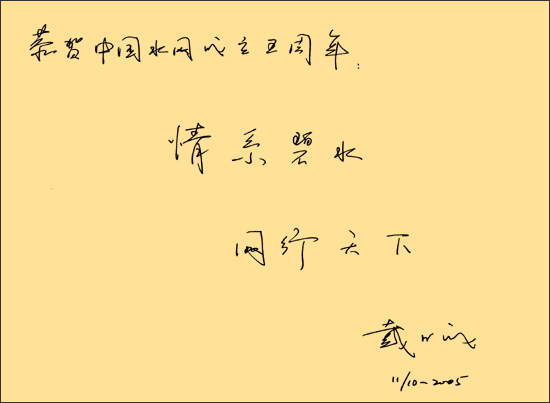 恭贺中国水网成立五周年:
情系碧水
网行天下
戴日成
11/10-2005